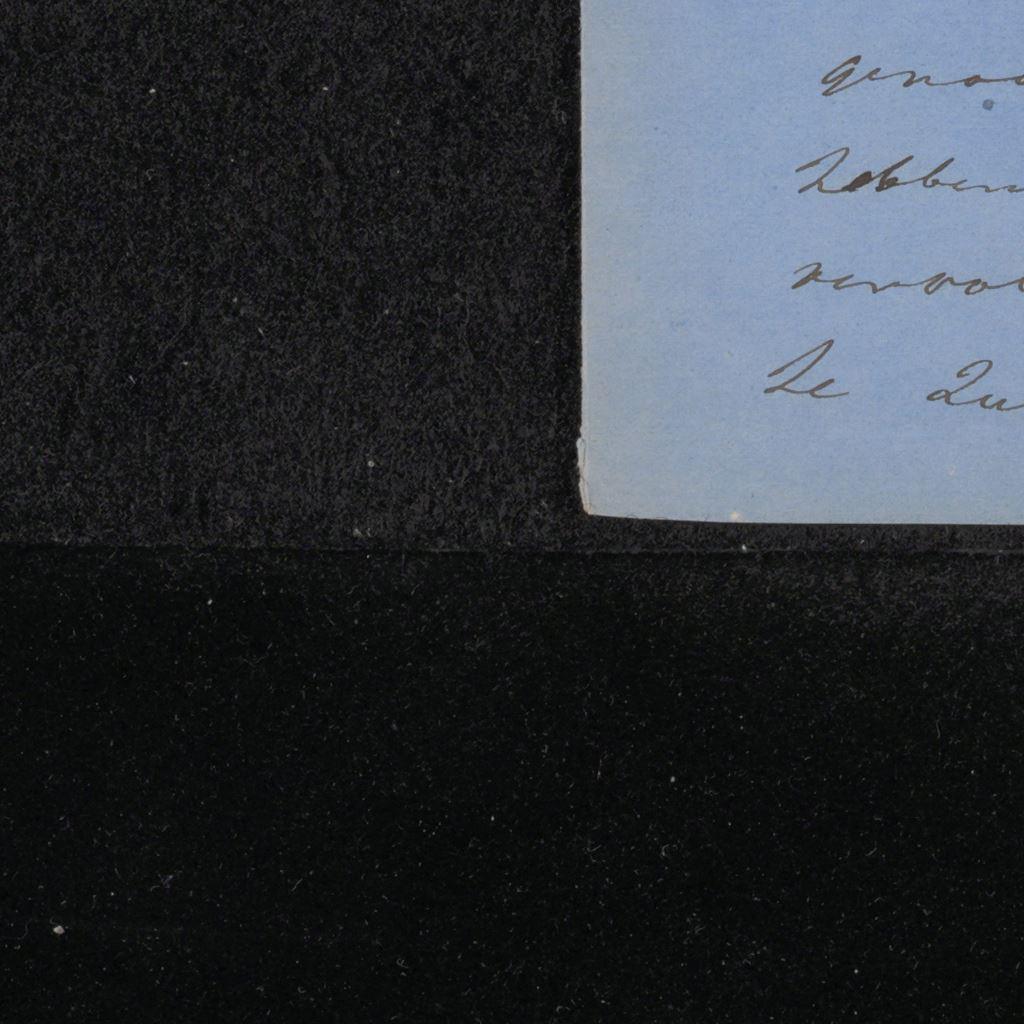 genoo
hebben
vervol
te Zu